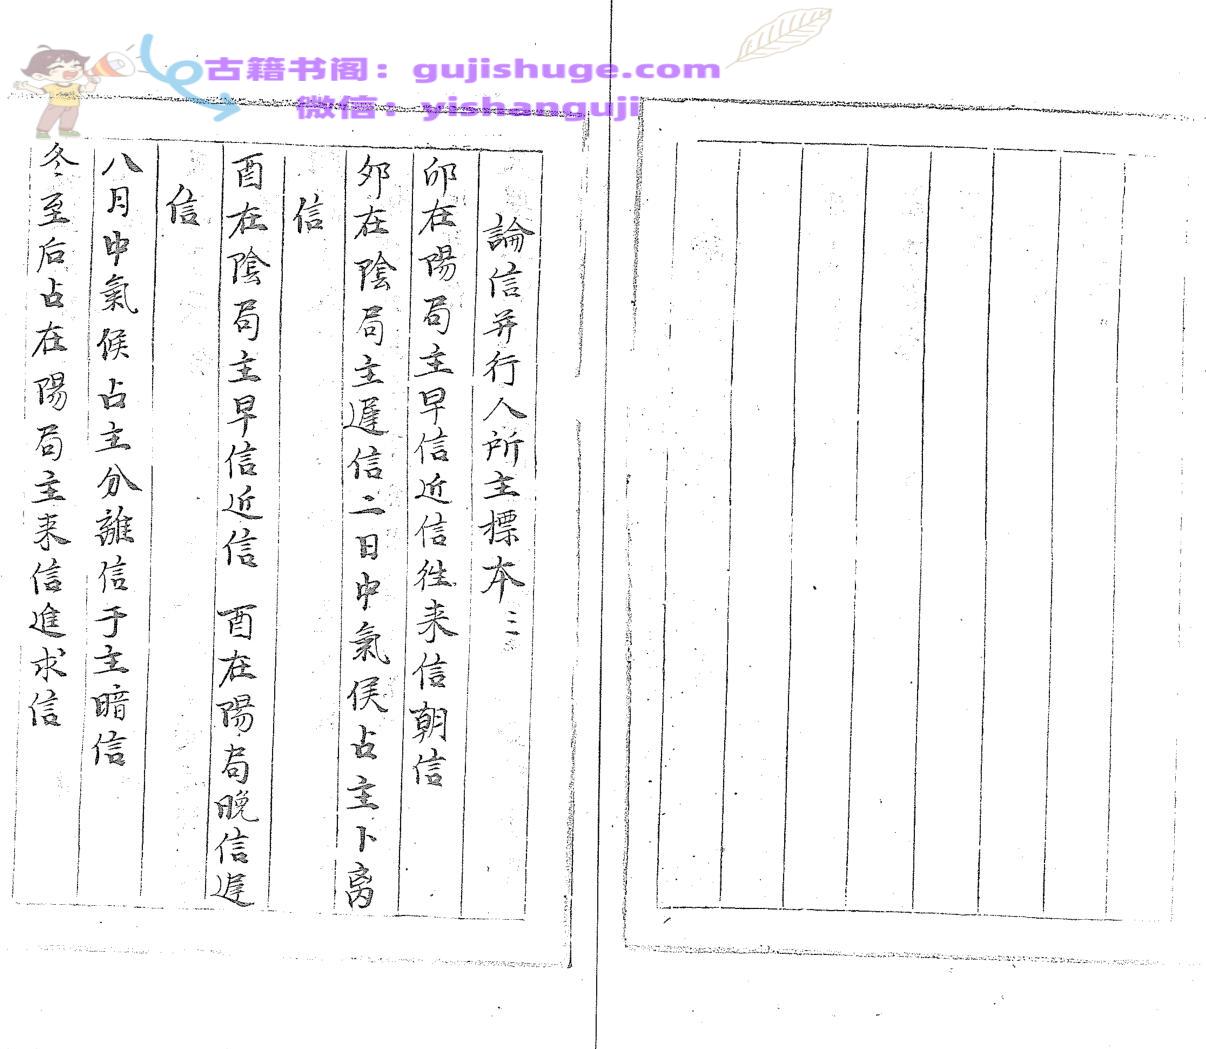 古籍书阁：gujishuge.com
微信：yishanguji
論信并行人所主標本三
卯在陽局主早信近信徃来信朝信
夘在陰局主遲信二日中氣侯占主卜离
信
酉在陰局主早信近信 酉在陽局晚信遲
信
八月中氣候占主分離信于主暗信
冬至后占在陽局主来信進求信